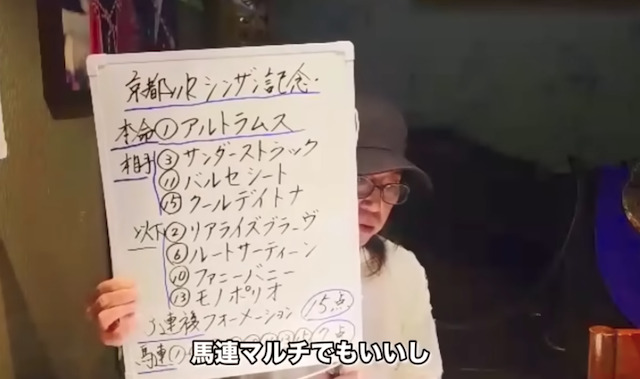 京都11R シンザン記念.
本命 ① アルトラムス
相手 ③ サンダーストラック
⑪ バルセシート
⑮ クールデイトナ
以下 ② リアライズブラーヴ
⑥ ルートサーティーン
⑩ ファニーバニー
⑬ モノポリオ
3連複フォーメーション 15点
馬連 ① 7点
馬連マルチでもいいし